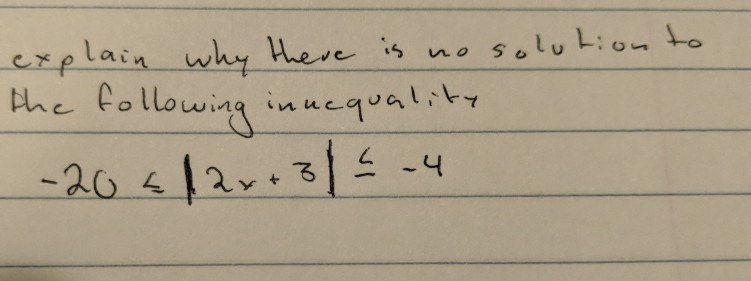 explain why there is no solution to
the following inuequality
-20 ≤ |2x + 3| ≤ -4